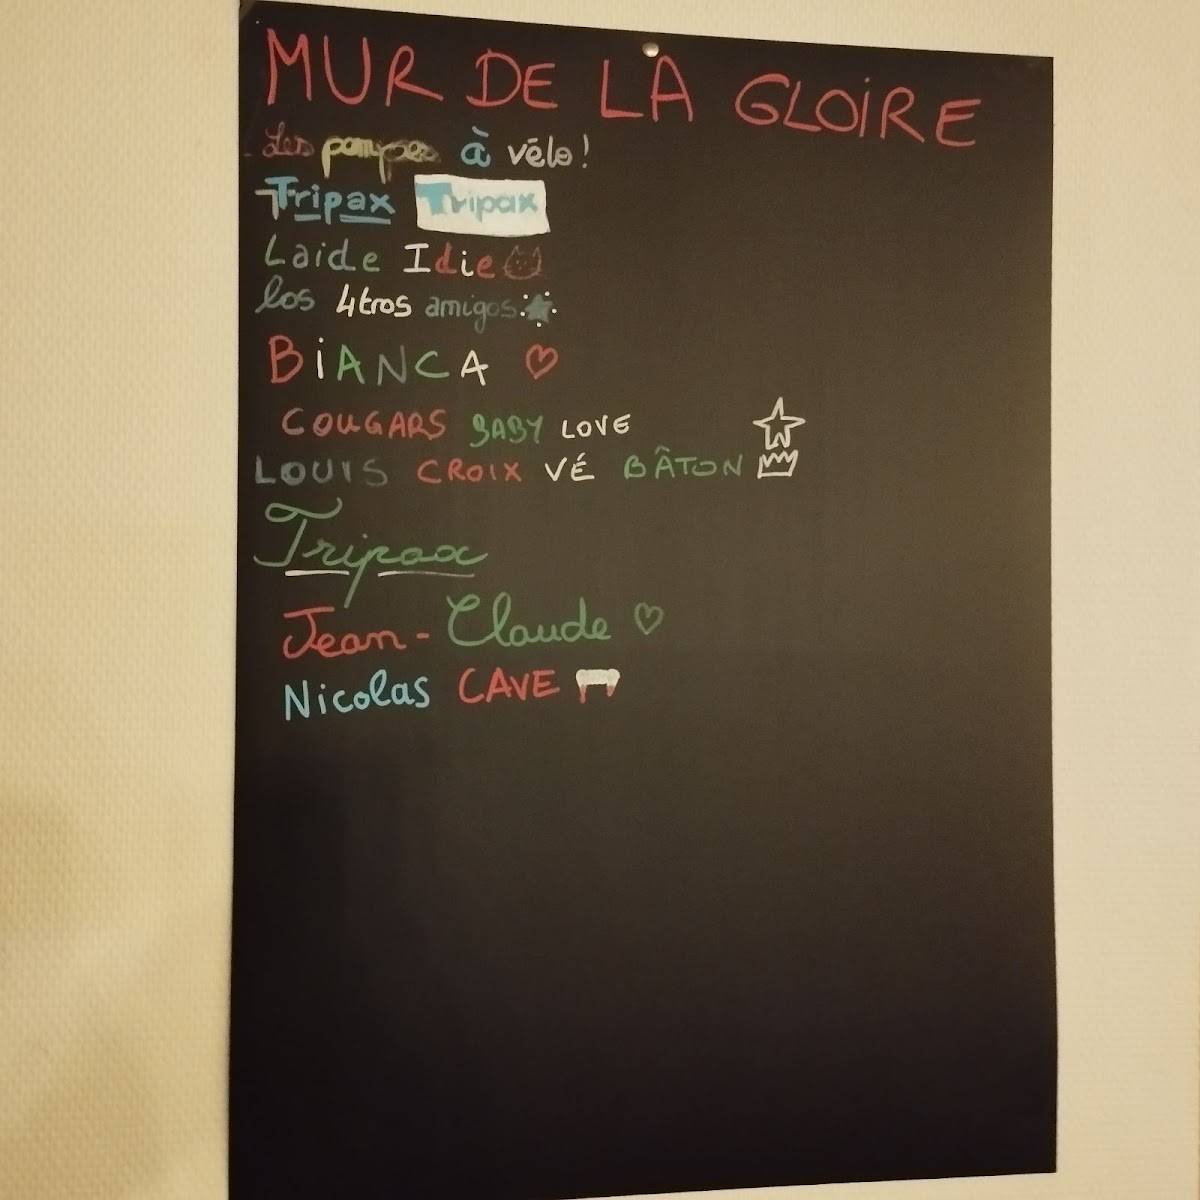 MUR DE LA GLOIRE
Les pompes à vélo!
Tripax Tripax
Laide Idie
los 4tros amigos
BiANCA
COUGARS BABY LOVE
LOUIS CROIX VÉ BÂTON
Tripax
Jean-Claude
Nicolas CAVE